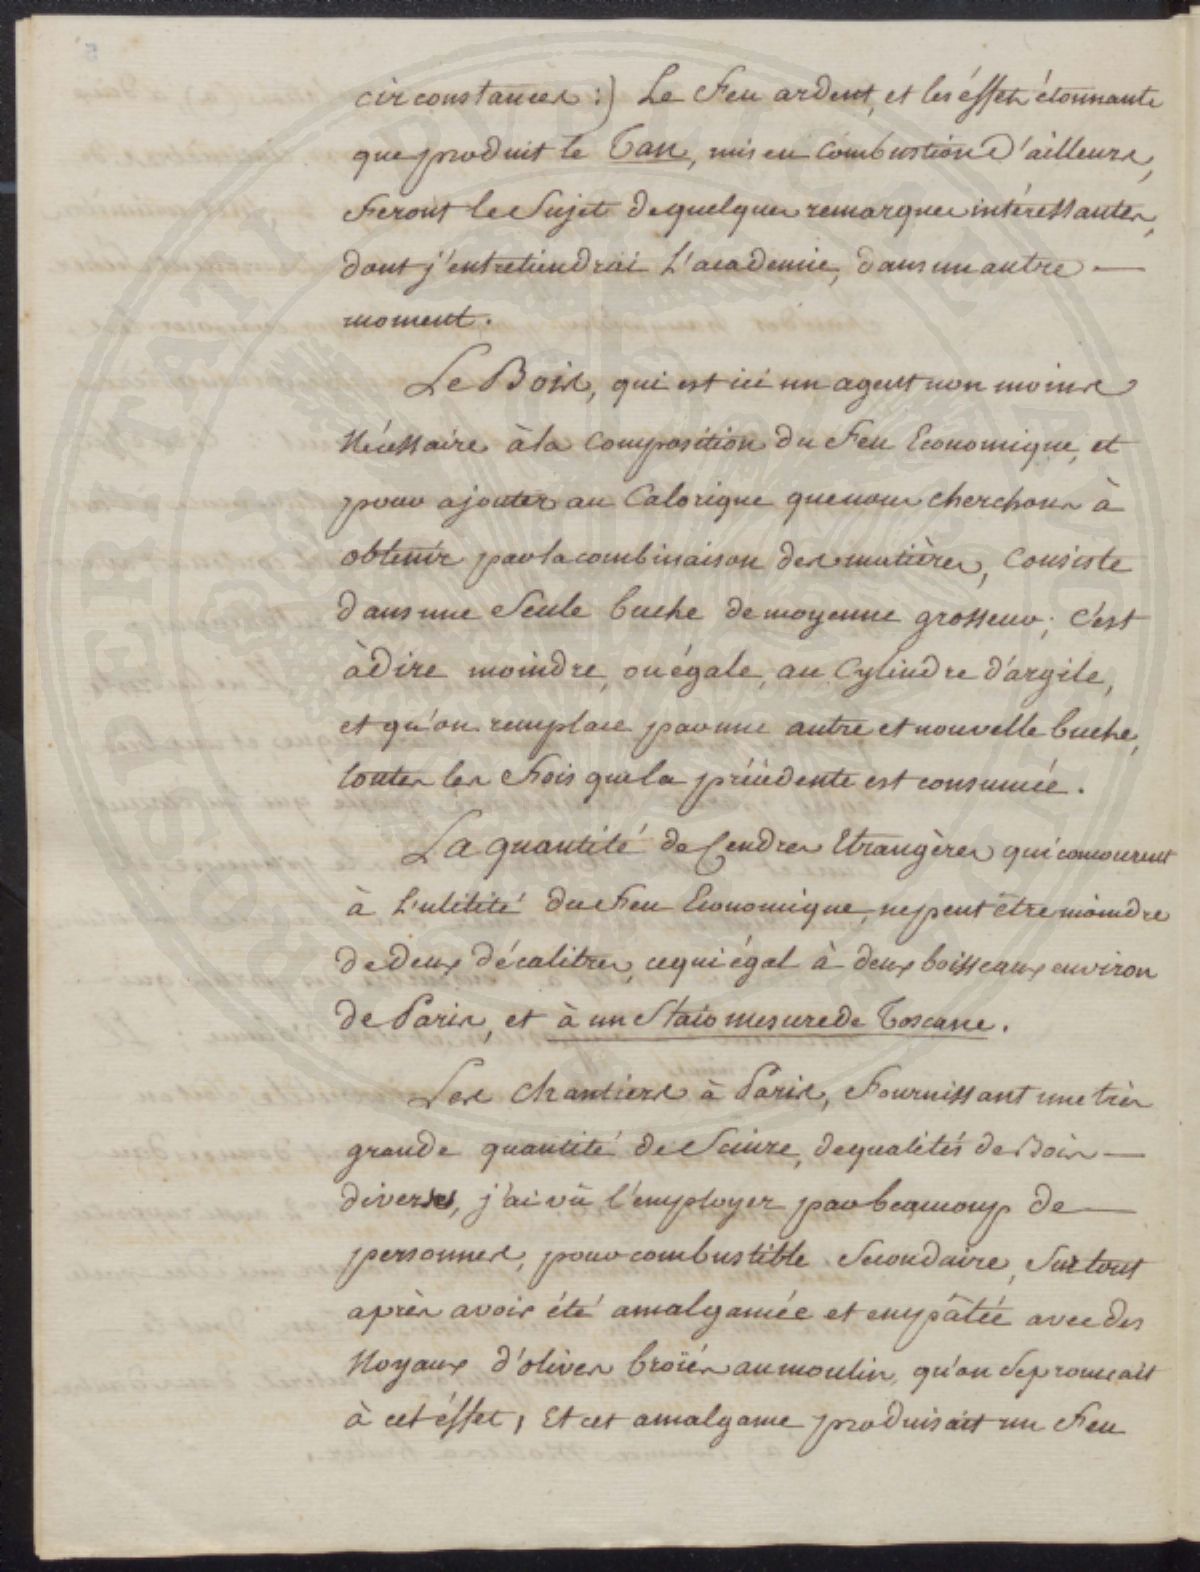 circonstances:) Le Feu ardent, et les éffets étonnants
que produit le Tan, mis en Combustion d'ailleurs,
Feront le Sujet de quelques remarques intéressantes,
dont j'entretiendrai L'academie, dans un autre —
moment.
Le Bois, qui est ici un agent non moins
Nécessaire à la Composition du Feu Economique, et
pour ajouter au Calorique que nous cherchons à
obtenir par la combinaison des matières, Consiste
dans une Seule buche de moyenne grosseur; C'est
à dire moindre, ou égale, au Cylindre d'argile,
et qu'on remplace par une autre et nouvelle buche,
toutes les Fois que la précédente est consumée.
La quantité de Cendres Etrangères qui concourent
à L'utilité du Feu Economique, ne peut être moindre
de deux décalitres, ce qui égal à deux boisseaux environ
de Paris, et à un Staio mesure de Toscane.
Les Chantiers à Paris, Fournissant une très
grande quantité de Sciure, de qualités de Bois —
diverses, j'ai vû l'employer par beaucoup de —
personnes, pour combustible Secondaire, Surtout
après avoir été amalgamée et empâtée avec des
Noyaux d'olives broïés au moulin, qu'on Se procurait
à cet éffet; Et cet amalgame produisait un Feu